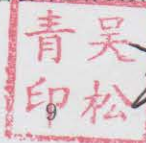 吴松
青印
9